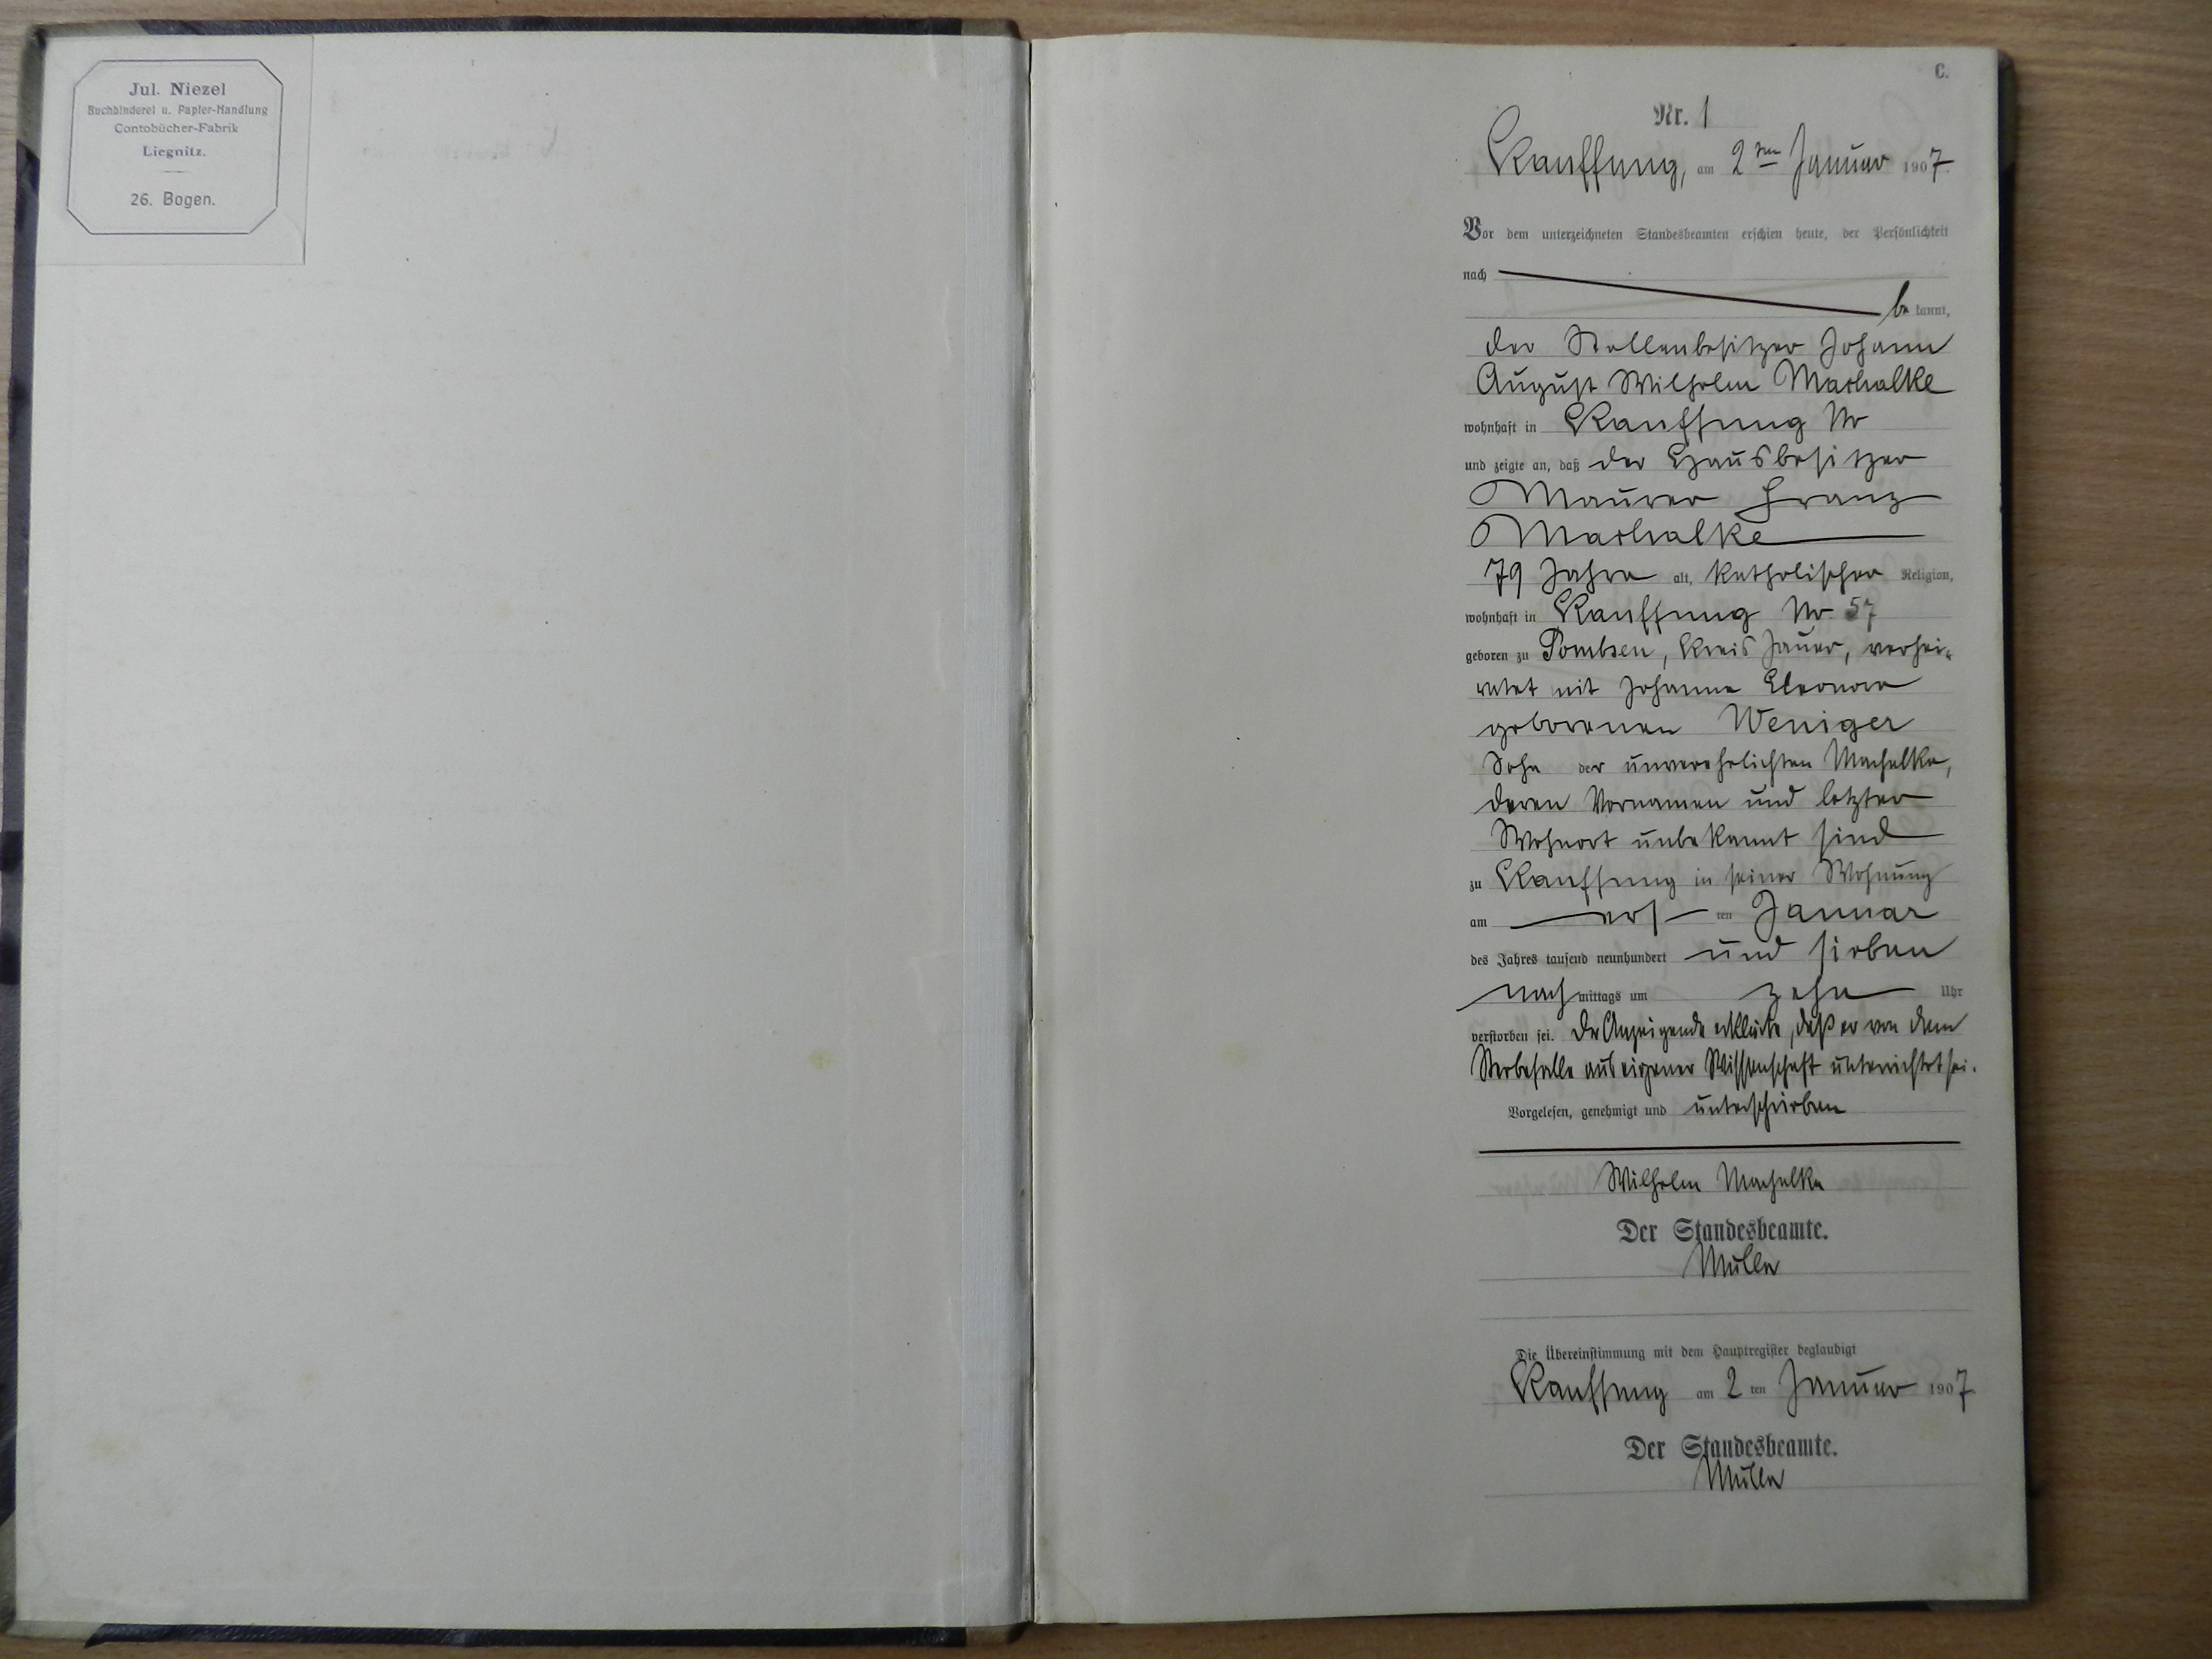 Jul. Niezel
Buchbinderei u. Papier-Handlung
Contobücher-Fabrik
Liegnitz.
26. Bogen.
C.
Nr. 1
Kauffung, am 2ten Januar 1907.
Vor dem unterzeichneten Standesbeamten erschien heute, der Persönlichkeit
nach
bekannt,
der Stellenbesitzer Johann
August Wilhelm Machalke
wohnhaft in Kauffung Nr
und zeigte an, daß der Hausbesitzer
Maurer Franz
Machalke
79 Jahre alt, katholischer Religion,
wohnhaft in Kauffung Nr. 57
geboren zu Pombsen, Kreis Jauer, verhei-
ratet mit Johanna Eleonore
geborenen Weniger
Sohn der unverehelichten Machalke,
deren Vornamen und letzter
Wohnort unbekannt sind
zu Kauffung in seiner Wohnung
am ersten Januar
des Jahres tausend neunhundert und sieben
nachmittags um zehn Uhr
verstorben sei. Der Anzeigende erklärte, daß er von dem
Sterbefalle aus eigener Wissenschaft unterrichtet sei.
Vorgelesen, genehmigt und unterschrieben
Wilhelm Machalke
Der Standesbeamte.
Müller
Die Übereinstimmung mit dem Hauptregister beglaubigt
Kauffung am 2ten Januar 1907.
Der Standesbeamte.
Müller